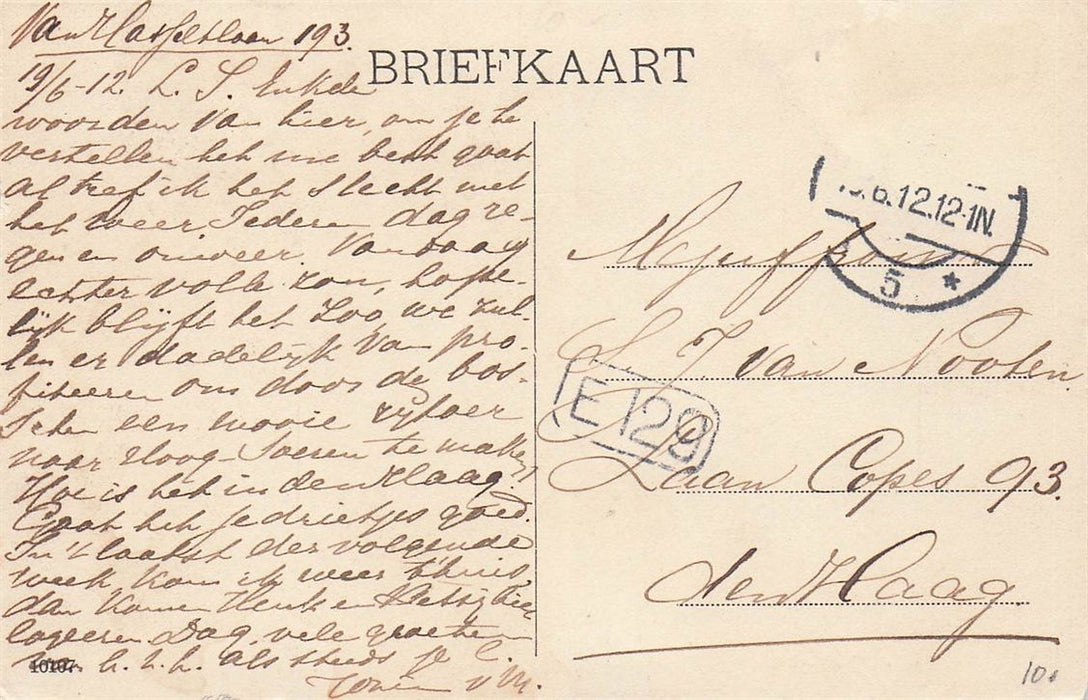 van Hasseltlaan 193.
19/6-12. L. S. Enkele
woorden van hier, om je te
vertellen het me best gaat
al tref ik het slecht met
het weer. Iederen dag re-
gen en onweer. Vandaag
echter volle zon, hope-
lijk blijft het zoo, we zul-
len er dadelijk van pro-
fiteeren om door de bos-
schen een mooie rijtoer
naar Hoog-Soeren te maken.
Hoe is het in den Haag?
Gaat het je drietjes goed.
In 't laatst der volgende
week kom ik weer thuis,
dan komen Henk en Betsy hier
logeeren. Dag, vele groeten
van h. t. h. als steeds je C.
v M.
10107
BRIEFKAART
.6.12.12-1N.
5 *
Mejuffrouw
S J van Nooten.
E 129
Laan Copes 93.
den Haag.
10.